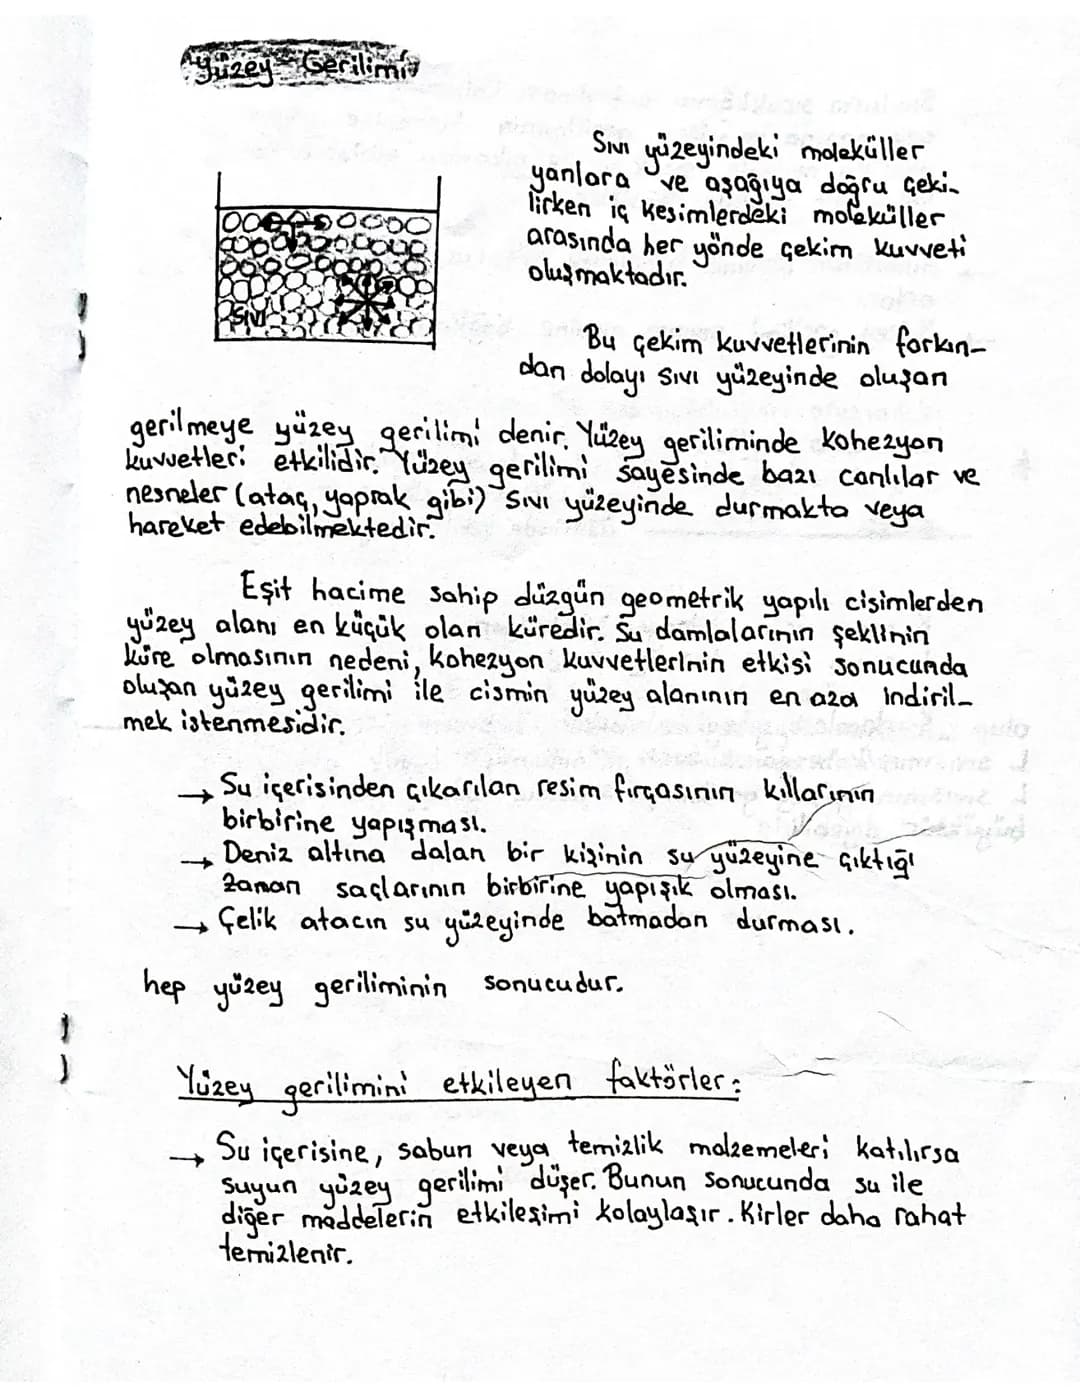 Yüzey Gerilimi
Sıvı yüzeyindeki moleküller
yanlara ve aşağıya doğru çeki-
lirken iç kesimlerdeki moleküller
arasında her yönde çekim kuvveti
oluşmaktadır.
SIVI
Bu çekim kuvvetlerinin farkın-
dan dolayı sıvı yüzeyinde oluşan
gerilmeye yüzey gerilimi denir. Yüzey geriliminde kohezyon
kuvvetleri etkilidir. Yüzey gerilimi sayesinde bazı canlılar ve
nesneler (ataç, yaprak gibi) sıvı yüzeyinde durmakta veya
hareket edebilmektedir.
Eşit hacime sahip düzgün geometrik yapılı cisimlerden
yüzey alanı en küçük olan küredir. Su damlalarının şeklinin
küre olmasının nedeni, kohezyon kuvvetlerinin etkisi sonucunda
oluşan yüzey gerilimi ile cismin yüzey alanının en aza indiril-
mek istenmesidir.
→ Su içerisinden çıkarılan resim fırçasının kıllarının
birbirine yapışması.
→ Deniz altına dalan bir kişinin su yüzeyine çıktığı
zaman saçlarının birbirine yapışık olması.
→ Çelik atacın su yüzeyinde batmadan durması.
hep yüzey geriliminin sonucudur.
Yüzey gerilimini etkileyen faktörler:
→ Su içerisine, sabun veya temizlik malzemeleri katılırsa
suyun yüzey gerilimi düşer. Bunun sonucunda su ile
diğer maddelerin etkileşimi kolaylaşır. Kirler daha rahat
temizlenir.